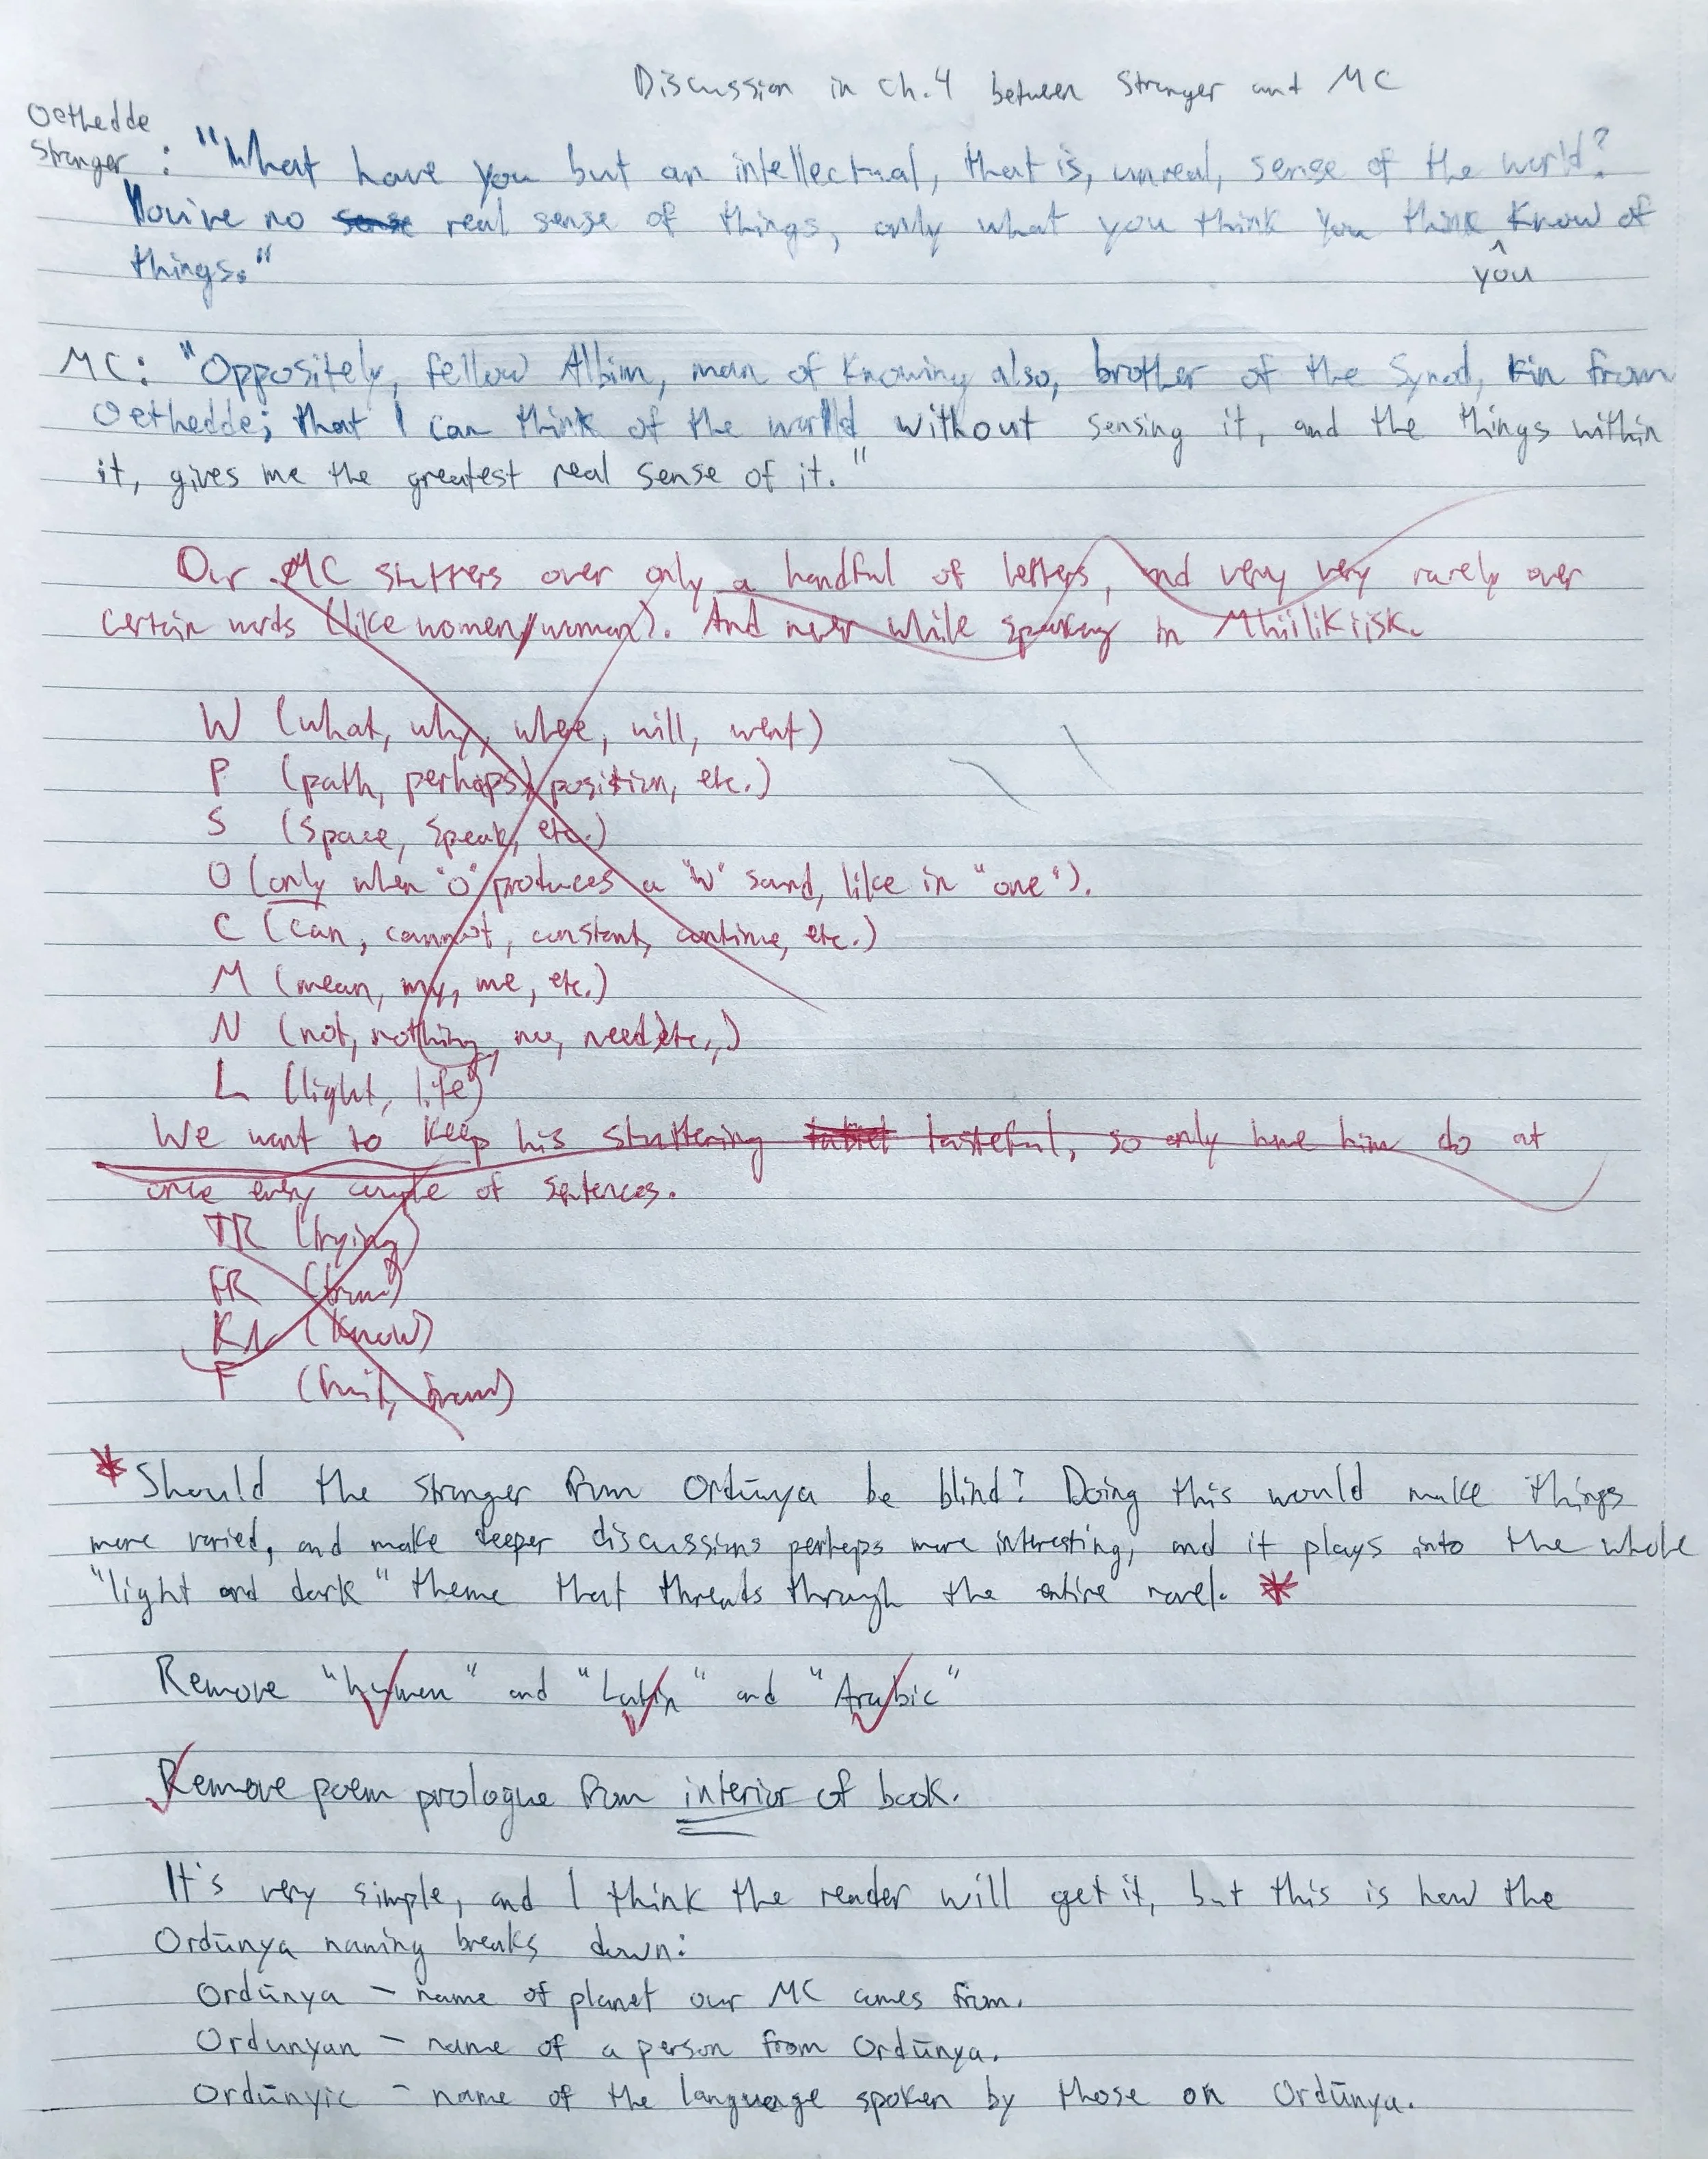 Discussion in Ch. 4 between Stranger and MC
Oethedde
Stranger : "What have you but an intellectual, that is, unreal, sense of the world?
You've no sense real sense of things, only what you think you think know of
you
things."
MC: "Oppositely, fellow Albim, man of knowing also, brother of the Synod, kin from
Oethedde; that I can think of the world without sensing it, and the things within
it, gives me the greatest real sense of it."
Our MC stutters over only a handful of letters, and very very rarely over
certain words (like women/woman). And never while speaking in Mhiilikiisk.
W (what, why, where, will, went)
P (path, perhaps, position, etc.)
S (space, speak, etc.)
O (only when "o" produces a "w" sound, like in "one").
C (can, cannot, constant, continue, etc.)
M (mean, my, me, etc.)
N (not, nothing, no, need, etc.,)
L (light, life)
We want to keep his stuttering tasteful, so only have him do at
once every couple of sentences.
TR (trying)
FR (from)
KN (know)
F (fruit, )
* Should the stranger from Ordūnya be blind? Doing this would make things
more varied, and make deeper discussions perhaps more interesting, and it plays into the whole
"light and dark" theme that threats through the entire novel. *
Remove "hymen" and "Latin" and "Arabic"
Remove poem prologue from interior of book.
It's very simple, and I think the reader will get it, but this is how the
Ordūnya naming breaks down:
Ordūnya – name of planet our MC comes from.
Ordunyan – name of a person from Ordūnya.
Ordūnyic – name of the language spoken by those on Ordūnya.